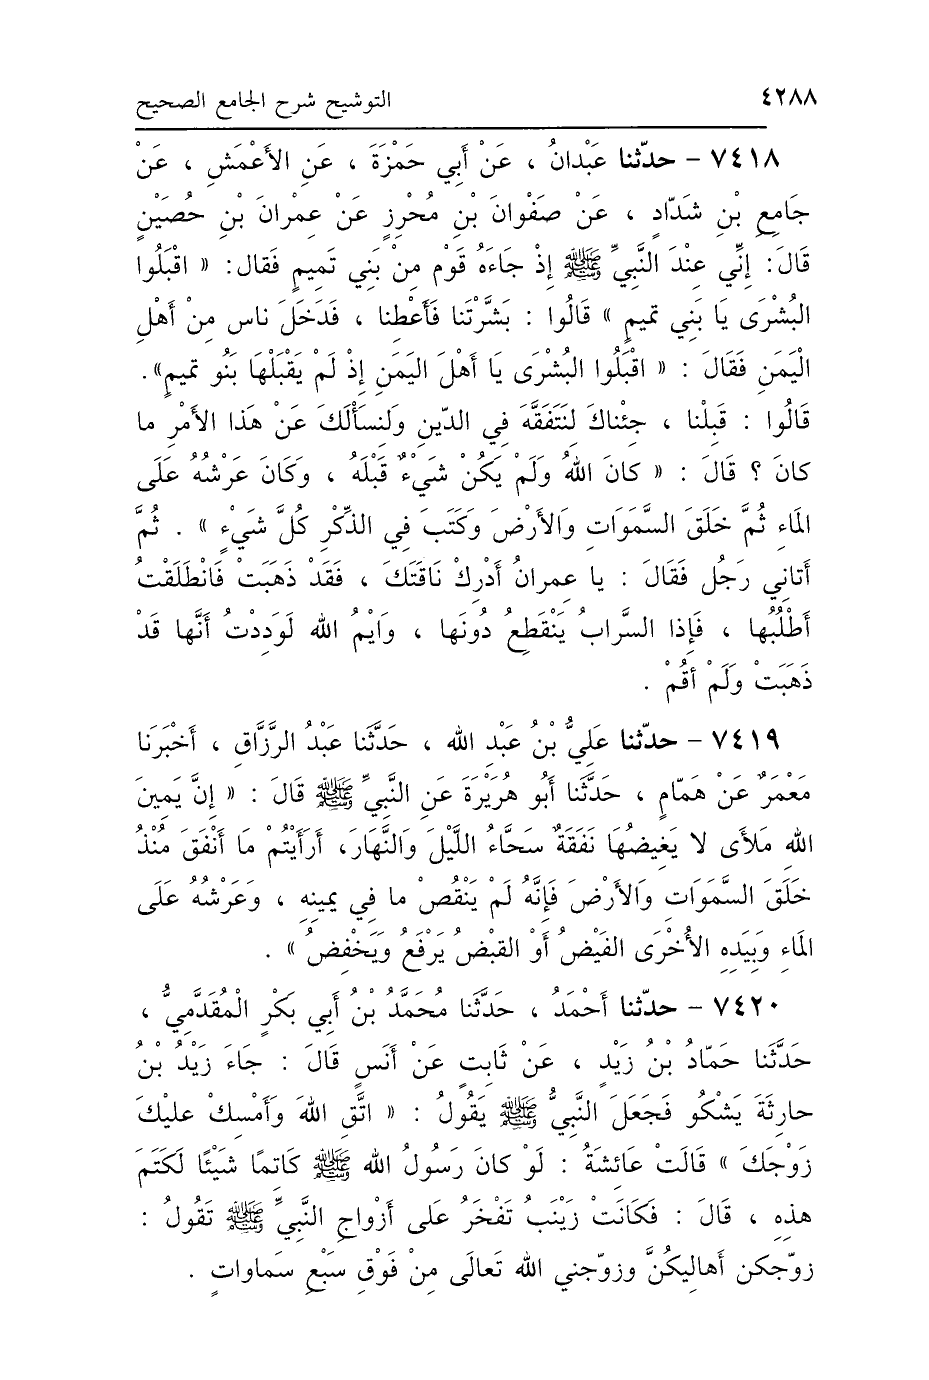 ٤٢٨٨ التوشيح شرح الجامع الصحيح
٧٤١٨ - حدّثنا عَبْدانُ ، عَنْ أَبي حَمْزَةَ ، عَنِ الأَعْمَشِ ، عَنْ
جَامِعِ بْنِ شَدَّادٍ ، عَنْ صَفْوانَ بْنِ مُحْرِزٍ عَنْ عِمْرانَ بْنِ حُصَيْنٍ
قَالَ: إِنِّي عِنْدَ النَّبِيِّ ﷺ إِذْ جَاءَهُ قَوْم مِنْ بَنِي تَمِيمٍ فَقال: « اقْبَلُوا
البُشْرَى يَا بَنِي تميمٍ » قَالُوا : بَشَّرْتَنا فَأَعْطِنا ، فَدَخَلَ ناس مِنْ أَهْلِ
الْيَمَنِ فَقَالَ : « اقْبَلُوا البُشْرَى يَا أَهْلَ اليَمَنِ إِذْ لَمْ يَقْبَلْهَا بَنُو تميمٍ».
قَالُوا : قَبِلْنا ، جِئْناكَ لِنَتَفَقَّهَ فِي الدِّينِ وَلِنسأَلَكَ عَنْ هَذا الأَمْرِ ما
كانَ ؟ قَالَ : « كانَ اللهُ وَلَمْ يَكُنْ شَيْءٌ قَبْلَهُ ، وَكَانَ عَرْشُهُ عَلَى
المَاءِ ثُمَّ خَلَقَ السَّمَوَاتِ وَالأَرْضَ وَكَتَبَ فِي الذِّكْرِ كُلَّ شَيْءٍ » . ثُمَّ
أَتاني رَجُل فَقَالَ : يا عِمرانُ أَدْرِكْ نَاقَتَكَ ، فَقَدْ ذَهَبَتْ فَانْطَلَقْتُ
أَطْلُبُها ، فَإِذا السَّرابُ يَنْقَطِعُ دُونَها ، وَايْمُ اللهِ لَوَدِدتُ أَنَّها قَدْ
ذَهَبَتْ وَلَمْ أَقُمْ .
٧٤١٩ - حدّثنا عَلِيُّ بْنُ عَبْدِ اللهِ ، حَدَّثَنا عَبْدُ الرَّزَّاقِ ، أَخْبَرَنا
مَعْمَرٌ عَنْ هَمَّامٍ ، حَدَّثَنا أَبُو هُرَيْرَةَ عَنِ النَّبِيِّ ﷺ قَالَ : « إِنَّ يَمِينَ
اللهِ مَلأَى لا يَغِيضُهَا نَفَقَةٌ سَحَّاءُ اللَّيْلَ وَالنَّهَارَ، أَرَأَيْتُمْ مَا أَنْفَقَ مُنْذُ
خَلَقَ السَّمَوَاتِ وَالأَرْضَ فَإِنَّهُ لَمْ يَنْقُصْ ما فِي يمينِهِ ، وَعَرْشُهُ عَلَى
المَاءِ وَبِيَدِهِ الأُخْرَى الفَيْضُ أَوْ القبْضُ يَرْفَعُ وَيَخْفِضُ » .
٧٤٢٠ - حدّثنا أَحْمَدُ ، حَدَّثَنا مُحَمَّدُ بْنُ أَبي بَكْرٍ الْمُقَدَّمِيُّ ،
حَدَّثَنا حَمّادُ بْنُ زَيْدٍ ، عَنْ ثابِتٍ عَنْ أَنَسٍ قَالَ : جَاءَ زَيْدُ بْنُ
حارِثَةَ يَشْكُو فَجَعَلَ النَّبِيُّ ﷺ يَقُولُ : « اتَّقِ اللهَ وَأَمْسِكْ عليْكَ
زَوْجَكَ » قَالَتْ عَائِشَةُ : لَوْ كانَ رَسُولُ اللهِ ﷺ كَاتِمًا شَيْئًا لَكَتَمَ
هذِهِ ، قَالَ : فَكَانَتْ زَيْنَبُ تَفْخَرُ عَلَى أَزْواجِ النَّبِيِّ ﷺ تَقُولُ :
زوّجكن أَهاليكُنَّ وزوّجني اللهُ تَعالَى مِنْ فَوْقِ سَبْعِ سَماواتٍ .